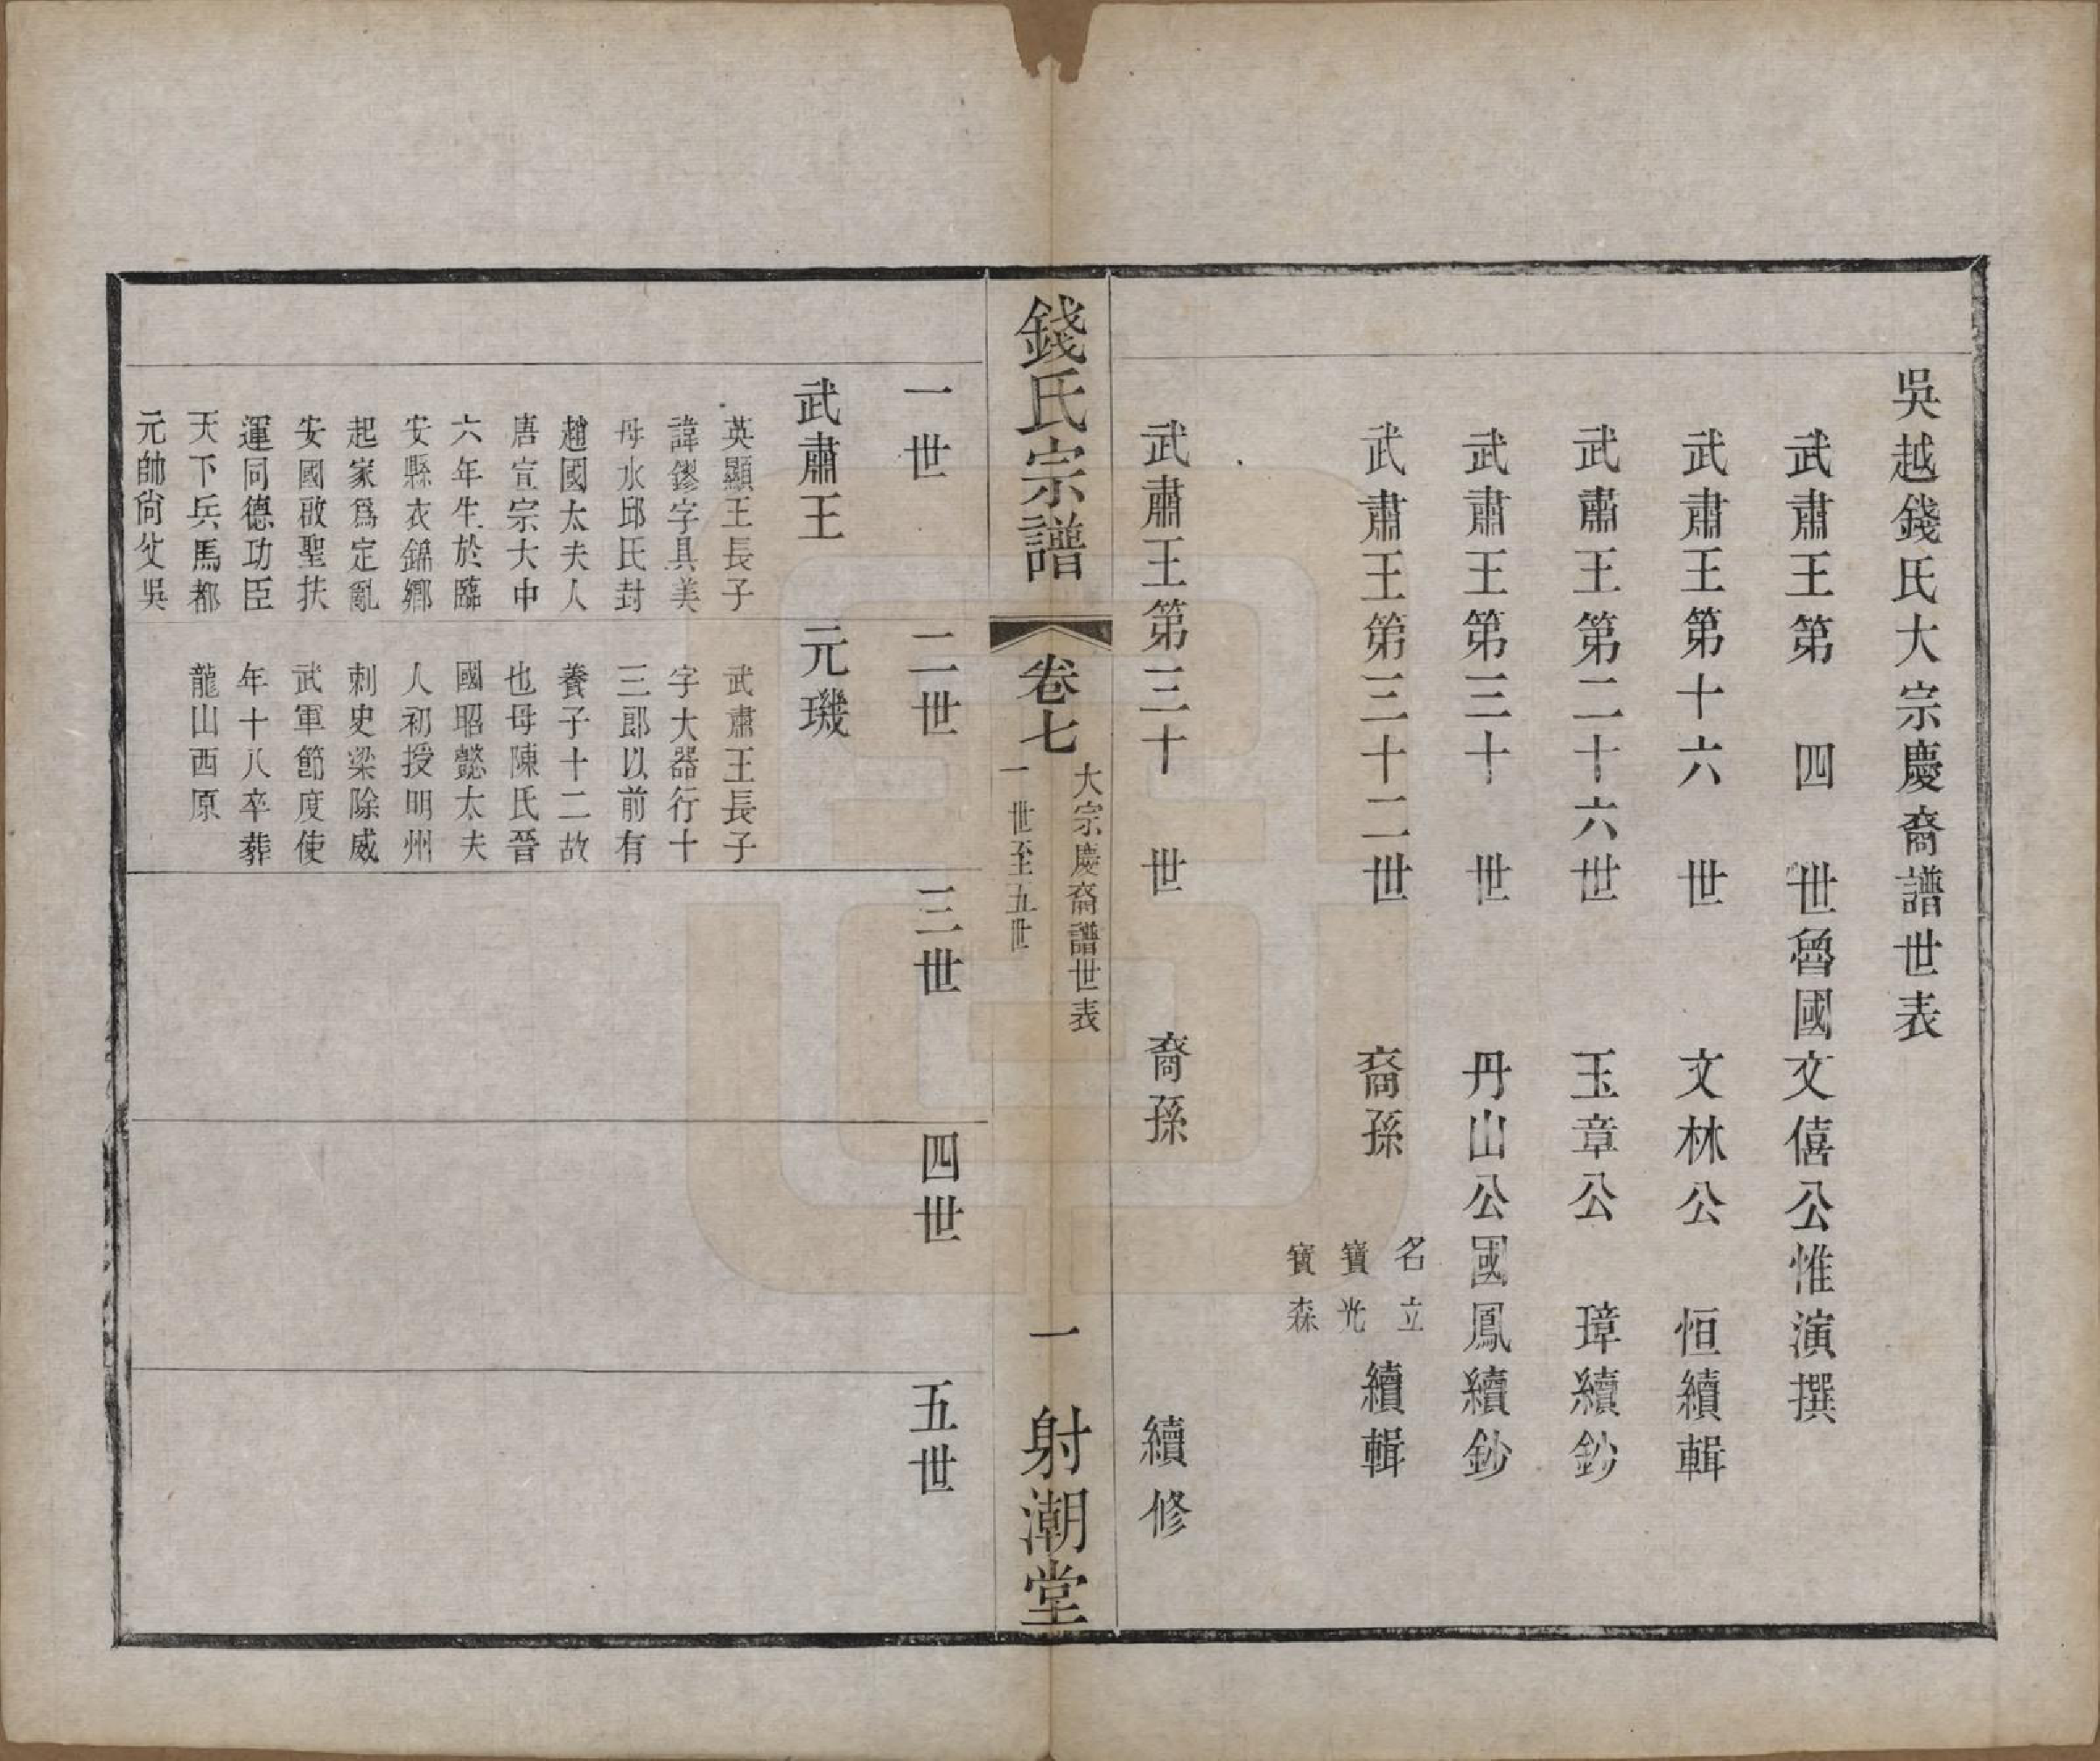 吳越錢氏大宗慶裔譜世表
武肅王第四世魯國文僖公惟演撰
武肅王第十六世文林公恒續輯
武肅王第二十六世玉章公璋續鈔
武肅王第三十世丹山公國鳳續鈔
武肅王第三十二世裔孫名立寶光寶森續輯
武肅王第三十世裔孫續修
錢氏宗譜
卷七
大宗慶裔譜世表
一世至五世
一
射潮堂
一世
二世
三世
四世
五世
武肅王
英顯王長子
諱鏐字具美
母水邱氏封
趙國太夫人
唐宣宗大中
六年生於臨
安縣衣錦鄉
起家爲定亂
安國啟聖扶
運同德功臣
天下兵馬都
元帥尙父吳
元璣
武肅王長子
字大器行十
三郎以前有
養子十二故
也母陳氏晉
國昭懿太夫
人初授明州
刺史梁除威
武軍節度使
年十八卒葬
龍山西原